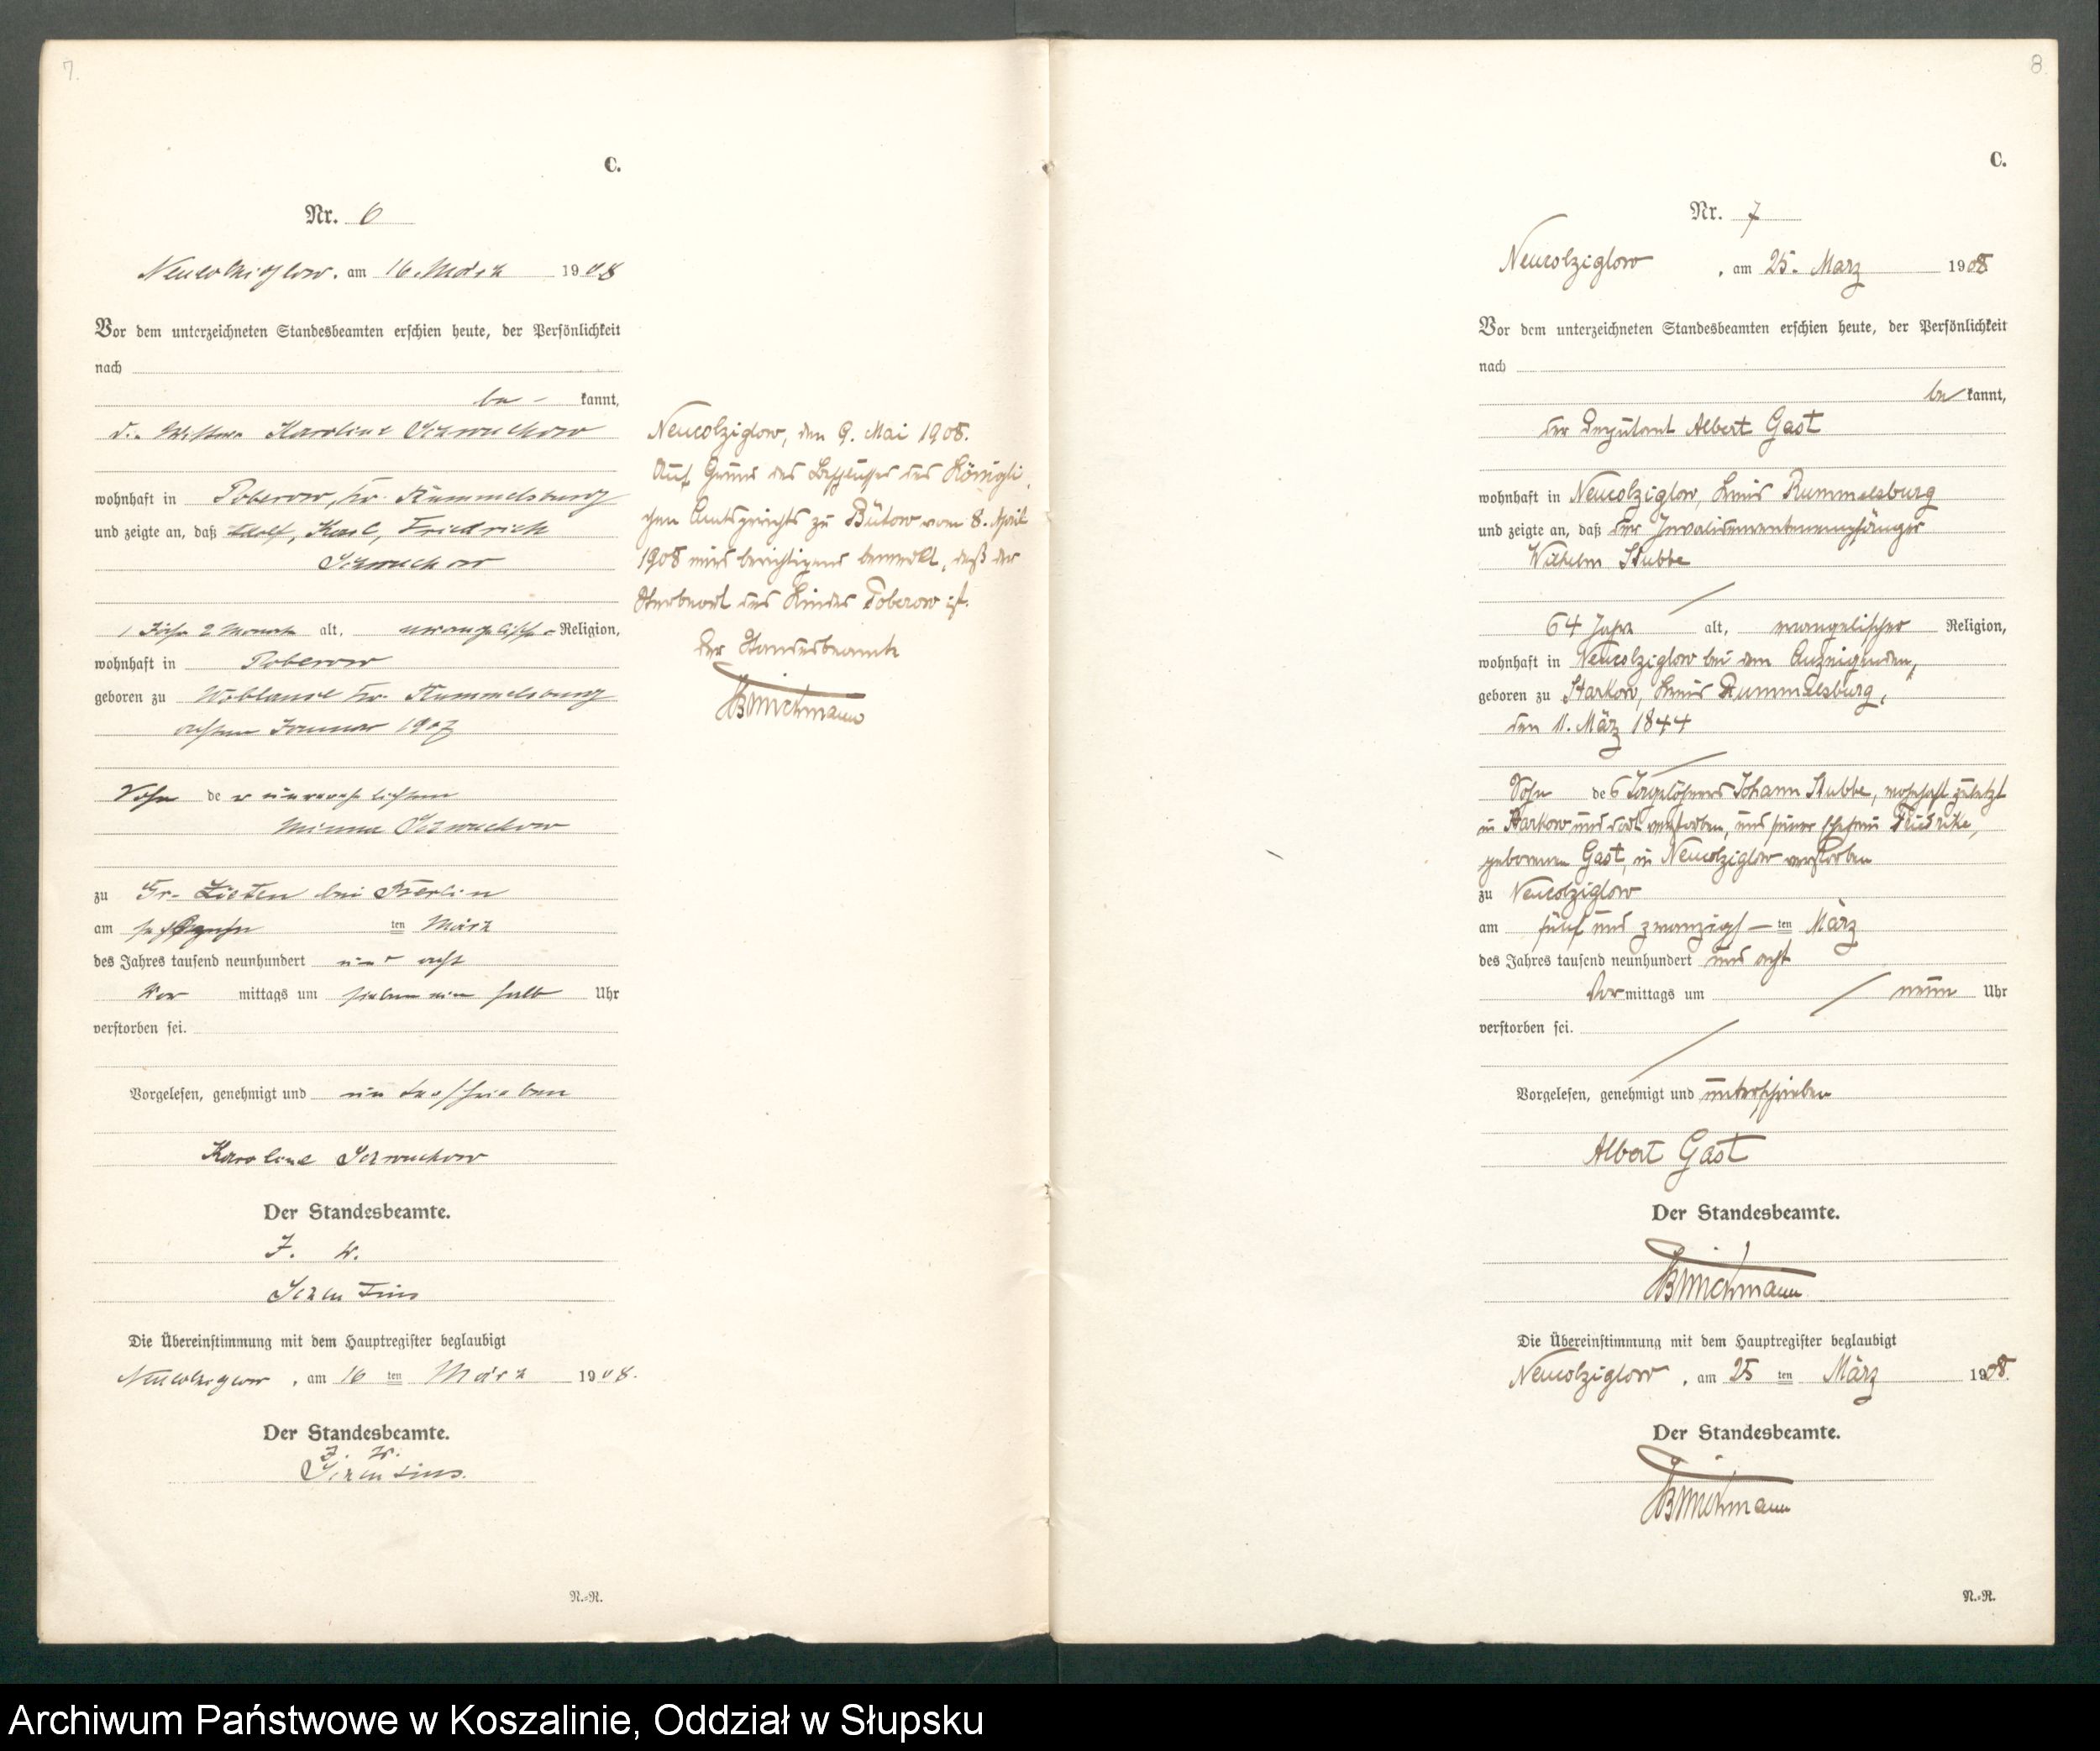 7.
C.
Nr. 6
Neukolziglow, am 16. März 1908
Vor dem unterzeichneten Standesbeamten erschien heute, der Persönlichkeit
nach
be- kannt,
die Witwe Karoline
wohnhaft in Poberow, Kr. Rummelsburg
und zeigte an, daß Adolf, Karl, Friedrich
1 Jahr 2 Monate alt, evangelischer Religion,
wohnhaft in Poberow
geboren zu Woblanse Kr. Rummelsburg
achten Januar 1907
Sohn der unverehelichten
Minna
zu Gr. Zieten bei Berlin
am ten März
des Jahres tausend neunhundert und acht
Vor mittags um sieben ein halb Uhr
verstorben sei.
Vorgelesen, genehmigt und unterschrieben
Karoline
Der Standesbeamte.
J. V.
Die Übereinstimmung mit dem Hauptregister beglaubigt
Neukolziglow, am 16 ten März 1908.
Der Standesbeamte.
J. V.
N.-R.
Neucolziglow, den 9. Mai 1908.
Auf Grund des Beschlusses des Königli-
chen Amtsgerichts zu Bütow vom 8. April
1908 wird berichtigend bemerkt, daß der
Sterbeort des Kindes Poberow ist.
Der Standesbeamte
Brinckmann
8.
C.
Nr. 7
Neucolziglow, am 25. März 1908
Vor dem unterzeichneten Standesbeamten erschien heute, der Persönlichkeit
nach
be kannt,
der Deputant Albert Gast
wohnhaft in Neucolziglow, Kreis Rummelsburg
und zeigte an, daß der Invalidenrentenempfänger
Wilhelm Stubbe
64 Jahre alt, evangelischer Religion,
wohnhaft in Neucolziglow bei dem Anzeigenden,
geboren zu Starkow, Kreis Rummelsburg,
den 11. März 1844
Sohn des Tagelöhners Johann Stubbe, wohnhaft zuletzt
in Starkow und dort verstorben, und seiner Ehefrau Friedrike,
geborenen Gast, in Neucolziglow verstorben
zu Neucolziglow
am fünf und zwanzigs-ten März
des Jahres tausend neunhundert und acht
Vor mittags um neun Uhr
verstorben sei.
Vorgelesen, genehmigt und unterschrieben
Albert Gast
Der Standesbeamte.
Brinckmann
Die Übereinstimmung mit dem Hauptregister beglaubigt
Neucolziglow, am 25 ten März 1908.
Der Standesbeamte.
Brinckmann
N.-R.
Archiwum Państwowe w Koszalinie, Oddział w Słupsku